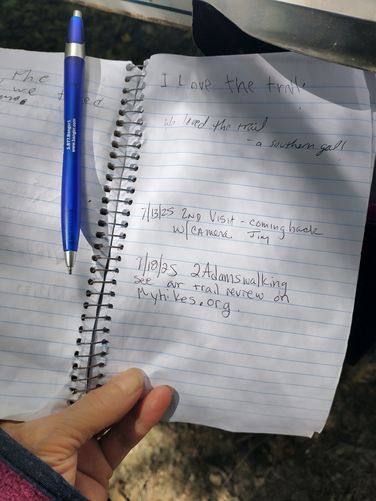 The
we
I Love the trail.
We loved the trail
- a southern gal!
7/13/25 2ND Visit - coming back
w/ camera Jim
7/19/25 2Adamswalking
see our trail review on
Myhikes.org.